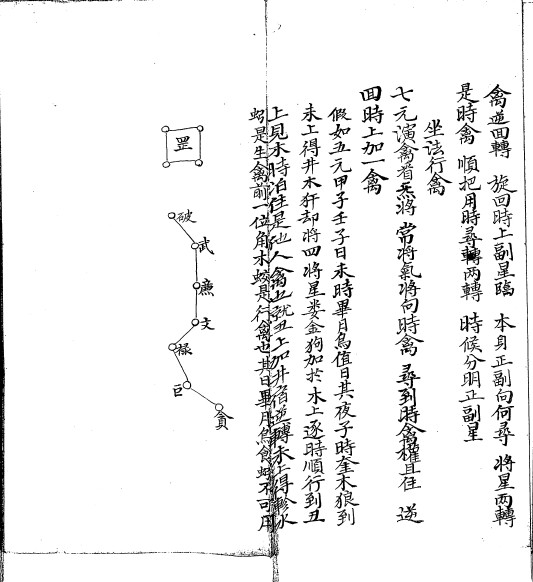 禽逆回轉 旋回時上副星臨 本身正副向何尋 將星兩轉
是時禽 順把用時尋轉兩轉 時候分明正副星
坐法行禽
七元演禽看炁將 常將氣將向時禽 尋到時禽權且住 逆
回時上加一禽
假如五元甲子壬子日未時畢月烏值日其夜子時奎木狼到
未上得井木犴却將四將星婁金狗加於未上逐時順行到丑
上見未時泊住是他人禽也就丑上加井宿逆轉未上得軫水
蚓是生禽前一位角木蛟是行禽也其日畢月烏食蚓不可用
罡
破
武
廉
文
祿
巨
貪